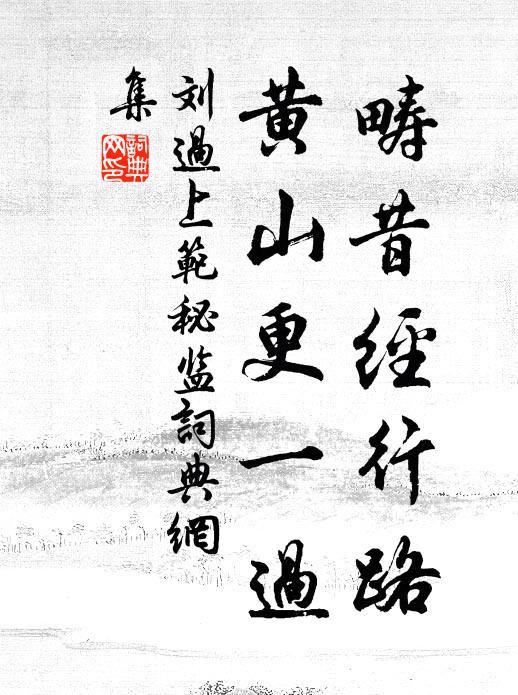 疇昔經行路
黃山更一過
刘過上範秘监詞典網
集
詞典
网印